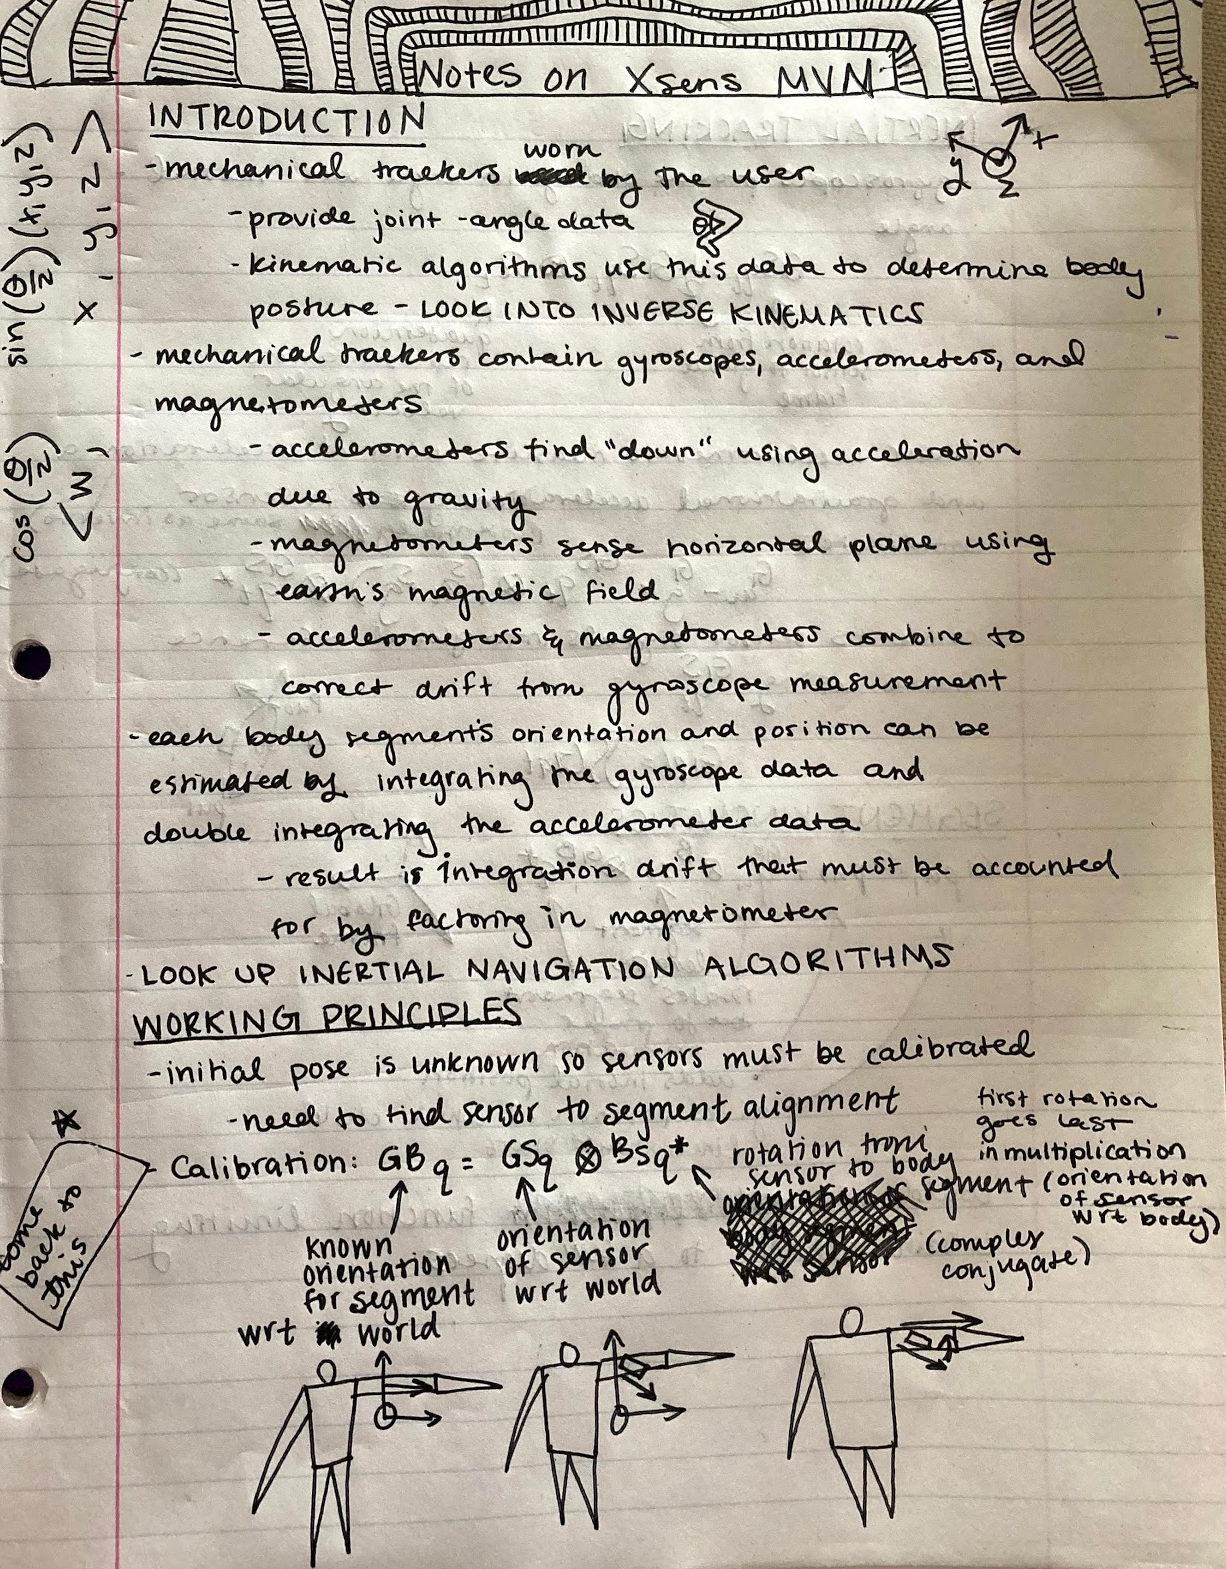 Notes on Xsens MVN
INTRODUCTION
- mechanical trackers worn by the user
- provide joint-angle data
θ
- kinematic algorithms use this data to determine body
posture - LOOK INTO INVERSE KINEMATICS
- mechanical trackers contain gyroscopes, accelerometers, and
magnetometers
- accelerometers find "down" using acceleration
due to gravity
- magnetometers sense horizontal plane using
earth's magnetic field
- accelerometers & magnetometers combine to
correct drift from gyroscope measurement
- each body segment's orientation and position can be
estimated by integrating the gyroscope data and
double integrating the accelerometer data
- result is integration drift that must be accounted
for by factoring in magnetometer
- LOOK UP INERTIAL NAVIGATION ALGORITHMS
WORKING PRINCIPLES
- initial pose is unknown so sensors must be calibrated
- need to find sensor to segment alignment
- Calibration: GBq = GSq ⊗ BSq*
known
orientation
for segment
wrt world
orientation
of sensor
wrt world
rotation from
sensor to body
segment (orientation
of sensor
wrt body)
first rotation
goes last
in multiplication
(complex
conjugate)
come
back to
this
x
y
z
cos(θ/2) sin(θ/2)(x,y,z)
<W, x, y, z>